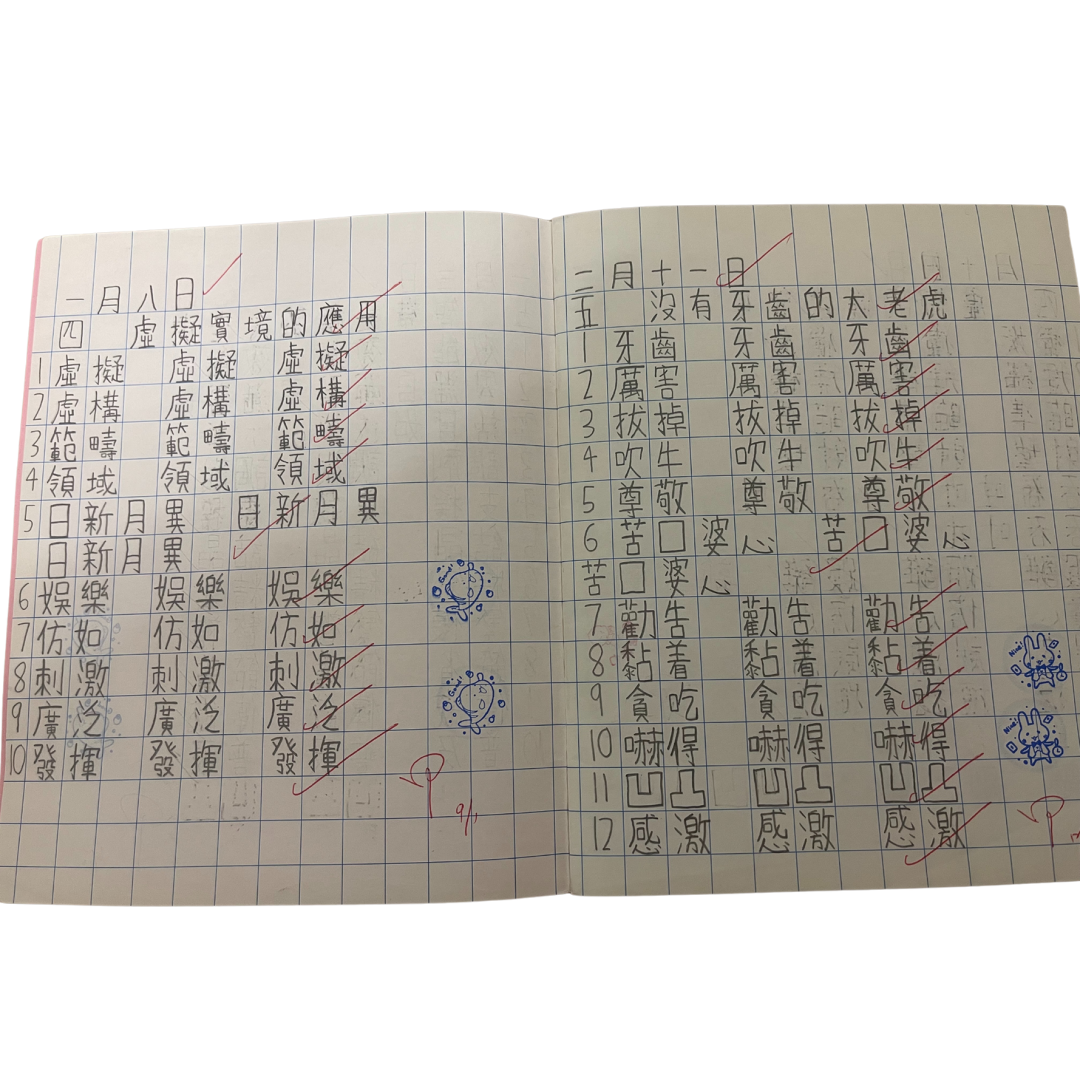 一月八日
四 虛擬實境的應用
1 虛擬 虛擬 虛擬
2 虛構 虛構 虛構
3 範疇 範疇 範疇
4 領域 領域 領域
5 日新月異 日新月異
日新月異
6 娛樂 娛樂 娛樂
7 仿如 仿如 仿如
8 刺激 刺激 刺激
9 廣泛 廣泛 廣泛
10 發揮 發揮 發揮
9/1
Good!
Good!
二月十一日
五 沒有牙齒的大老虎
1 牙齒 牙齒 牙齒
2 厲害 厲害 厲害
3 拔掉 拔掉 拔掉
4 吹牛 吹牛 吹牛
5 尊敬 尊敬 尊敬
6 苦口婆心 苦口婆心
苦口婆心
7 勸告 勸告 勸告
8 黏着 黏着 黏着
9 貪吃 貪吃 貪吃
10 嚇得 嚇得 嚇得
11 凹凸 凹凸 凹凸
12 感激 感激 感激
Nice!
Nice!